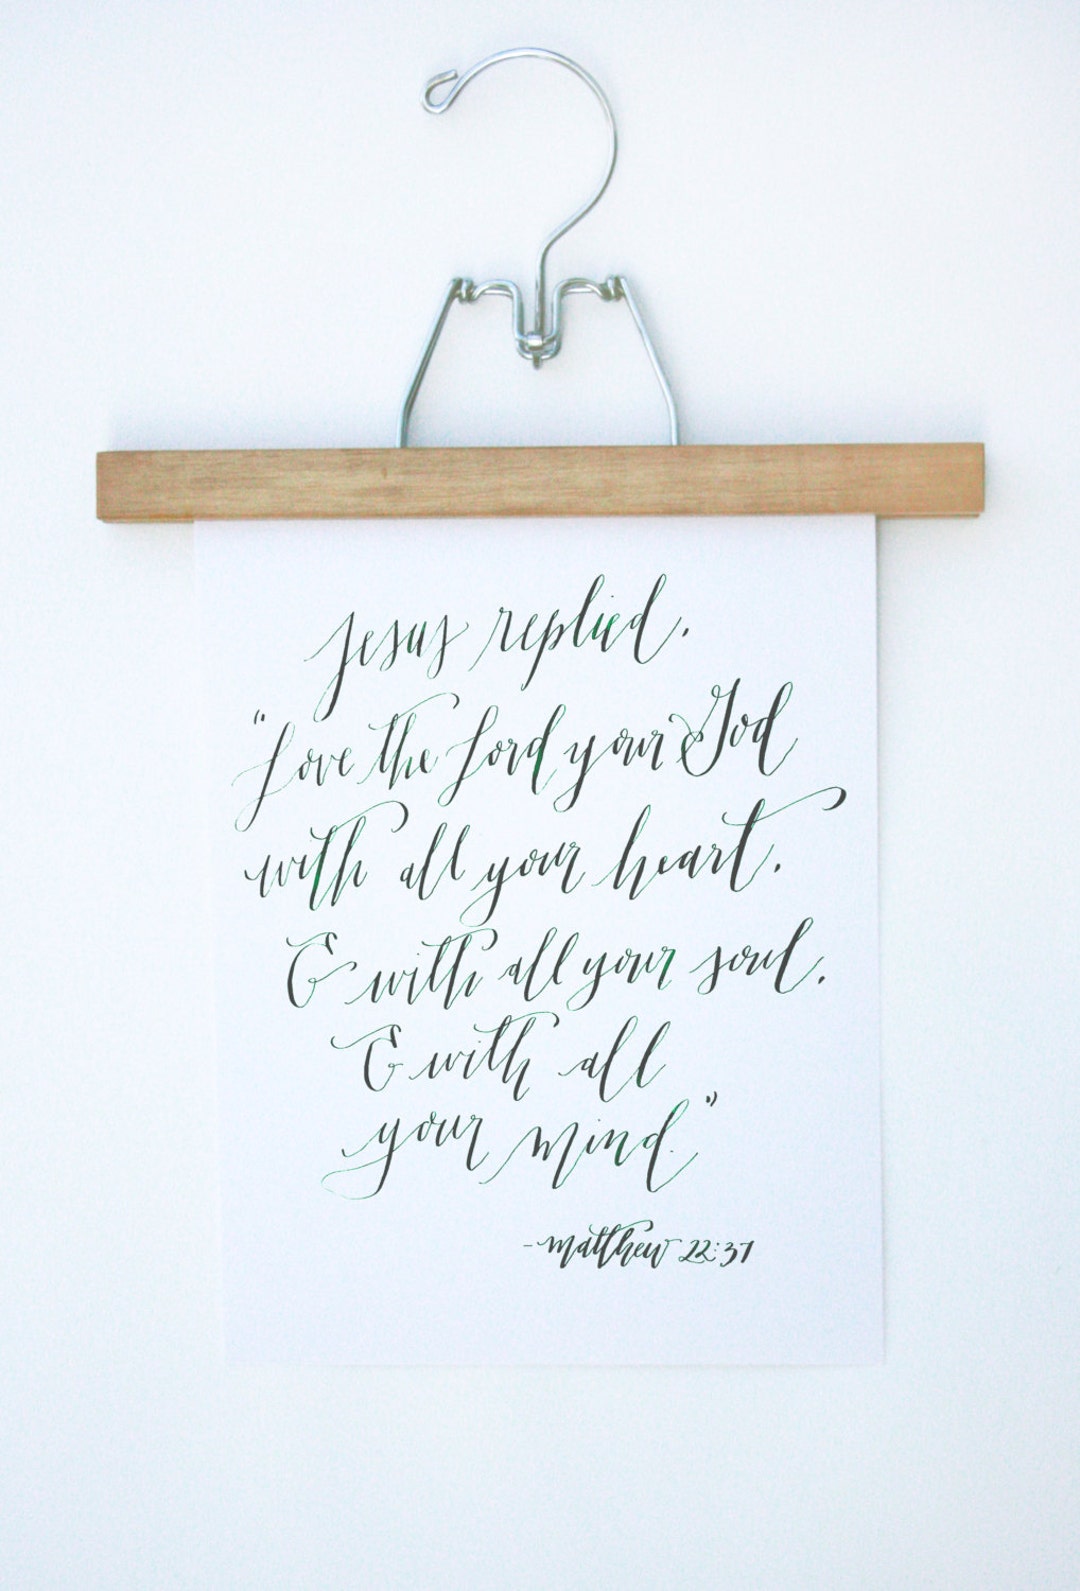 Jesus replied,
"Love the Lord your God
with all your heart,
& with all your soul,
& with all
your mind."
-matthew 22:37